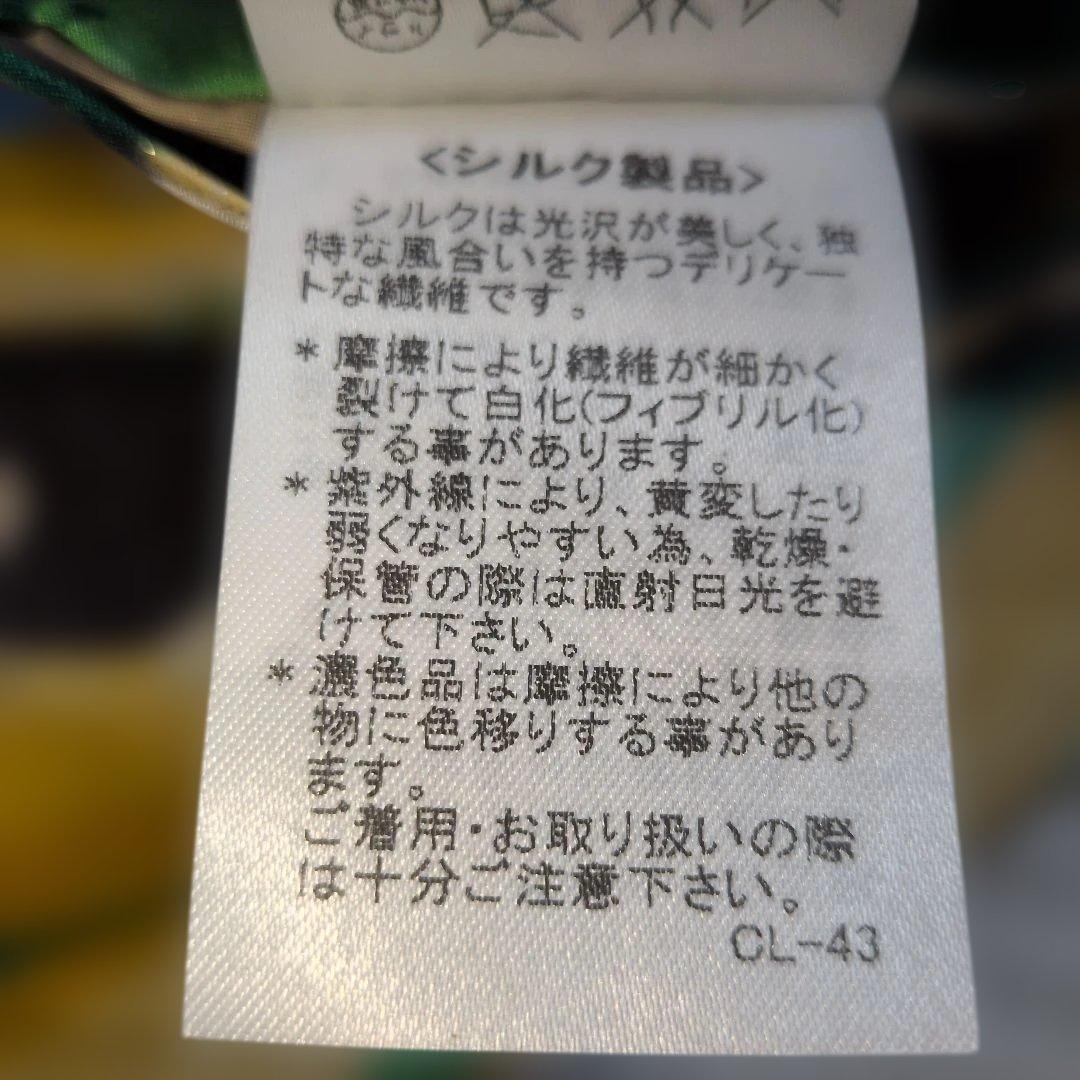 <シルク製品>
シルクは光沢が美しく、独
特な風合いを持つデリケー
トな繊維です。
* 摩擦により繊維が細かく
裂けて白化(フィブリル化)
する事があります。
* 紫外線により、黄変したり
弱くなりやすい為、乾燥・
保管の際は直射日光を避
けて下さい。
* 濃色品は摩擦により他の
物に色移りする事があり
ます。
ご着用・お取り扱いの際
は十分ご注意下さい。
CL-43